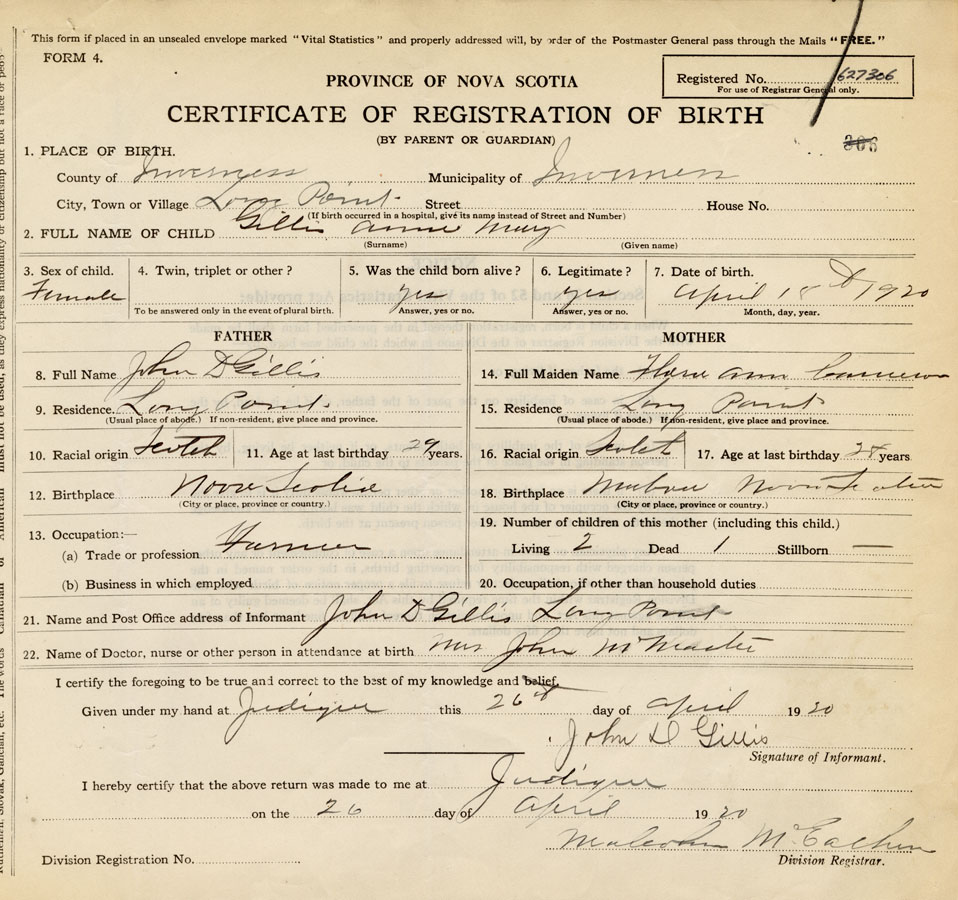 This form if placed in an unsealed envelope marked "Vital Statistics" and properly addressed will, by order of the Postmaster General pass through the Mails "FREE."
FORM 4.
PROVINCE OF NOVA SCOTIA
Registered No. 627306
For use of Registrar General only.
CERTIFICATE OF REGISTRATION OF BIRTH
(BY PARENT OR GUARDIAN)
306
1. PLACE OF BIRTH.
County of Inverness Municipality of Inverness
City, Town or Village Long Point Street House No.
(If birth occurred in a hospital, give its name instead of Street and Number)
2. FULL NAME OF CHILD Gillis Annie Mary
(Surname) (Given name)
3. Sex of child. 4. Twin, triplet or other? 5. Was the child born alive? 6. Legitimate? 7. Date of birth.
Female yes yes April 18th 1920
To be answered only in the event of plural birth. Answer, yes or no. Answer, yes or no. Month, day, year.
FATHER MOTHER
8. Full Name John D Gillis 14. Full Maiden Name Flora Ann Cameron
9. Residence. Long Point 15. Residence Long Point
(Usual place of abode.) If non-resident, give place and province. (Usual place of abode.) If non-resident, give place and province.
10. Racial origin Scotch 11. Age at last birthday 29 years. 16. Racial origin Scotch 17. Age at last birthday 28 years
12. Birthplace Nova Scotia 18. Birthplace Mabou Nova Scotia
(City or place, province or country.) (City or place, province or country.)
13. Occupation:— 19. Number of children of this mother (including this child.)
(a) Trade or profession Farmer Living 2 Dead 1 Stillborn —
(b) Business in which employed 20. Occupation, if other than household duties
21. Name and Post Office address of Informant John D Gillis Long Point
22. Name of Doctor, nurse or other person in attendance at birth Mrs John McMaster
I certify the foregoing to be true and correct to the best of my knowledge and belief.
Given under my hand at Judique this 26th day of April 1920
John D Gillis
Signature of Informant.
I hereby certify that the above return was made to me at Judique
on the 26 day of April 1920
Malcolm McEachern
Division Registration No. Division Registrar.